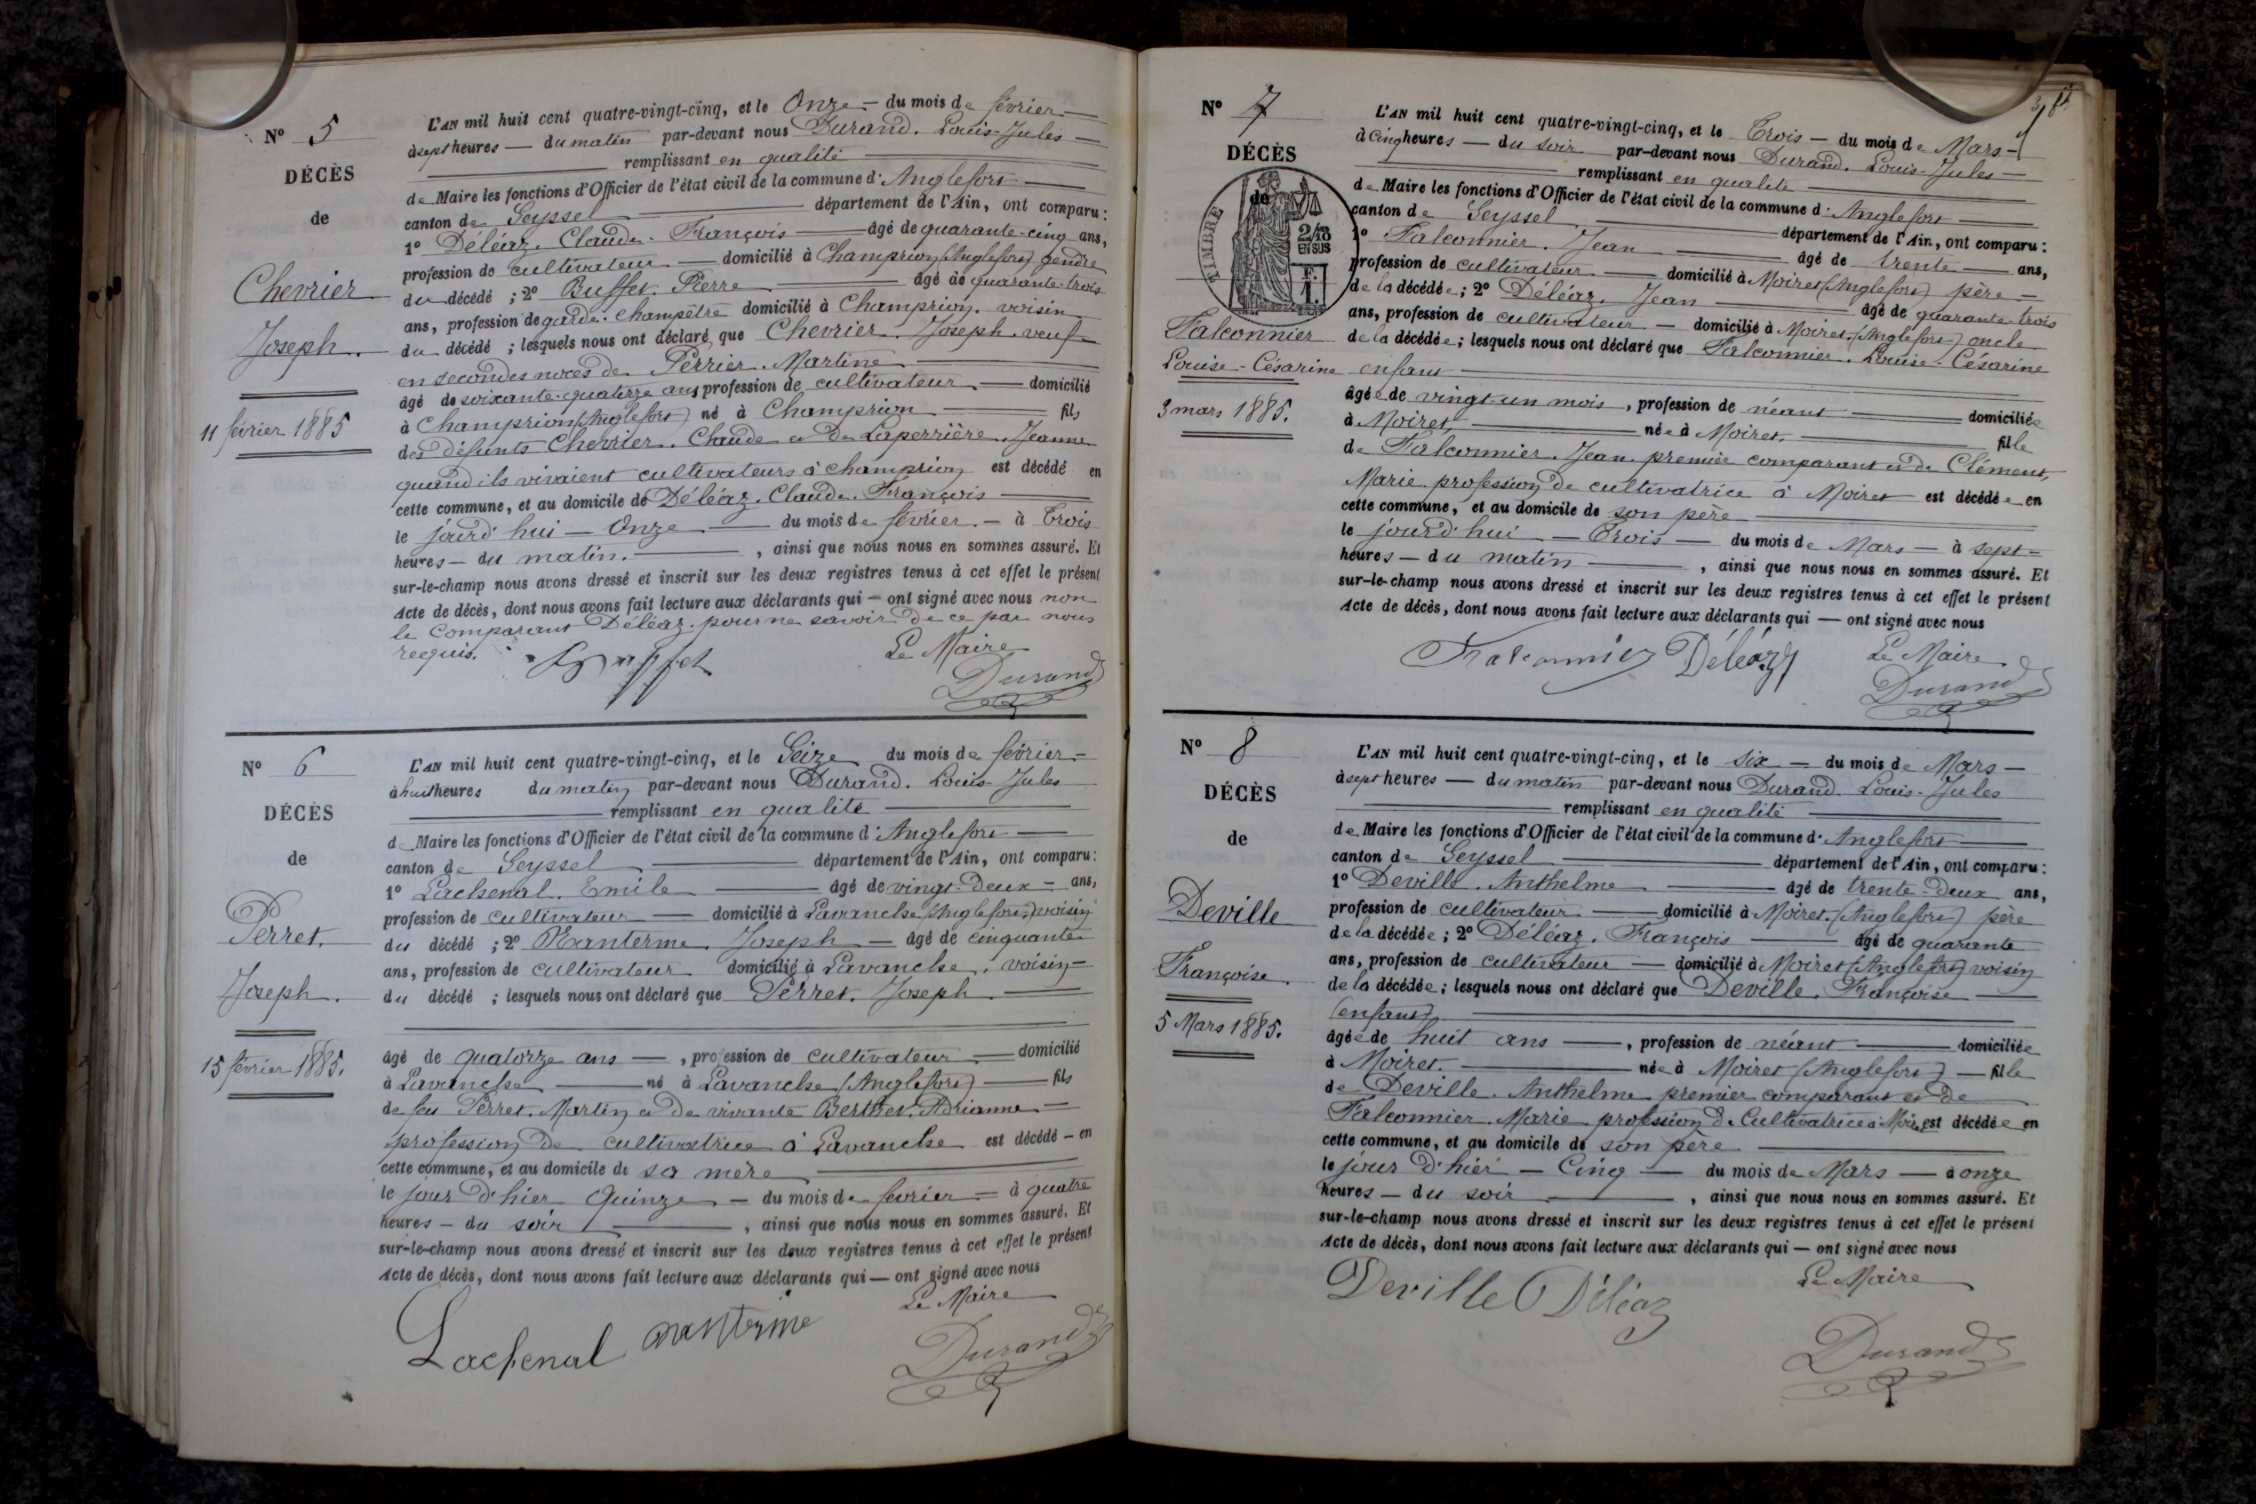 N° 5
DÉCÈS
de
Chevrier
Joseph.
11 février 1885
L'AN mil huit cent quatre-vingt-cinq, et le Onze — du mois de février —
à sept heures — du matin par-devant nous Durand. Louis-Jules —
remplissant en qualité
de Maire les fonctions d'Officier de l'état civil de la commune d'Anglefort
canton de Seyssel département de l'Ain, ont comparu :
1° Déléaz. Claude. François âgé de quarante-cinq ans,
profession de cultivateur domicilié à Champrion (Anglefort) gendre
du décédé ; 2° Buffet. Pierre âgé de quarante-trois
ans, profession de garde-champêtre domicilié à Champrion. voisin
du décédé ; lesquels nous ont déclaré que Chevrier. Joseph. veuf
en secondes noces de Perrier. Martine
âgé de soixante-quatorze ans profession de cultivateur domicilié
à Champrion (Anglefort) né à Champrion fils
des défunts Chevrier. Claude et De Laperrière. Jeanne
quand ils vivaient cultivateurs à Champrion est décédé en
cette commune, et au domicile de Déléaz. Claude. François
le jourd'hui — Onze — du mois de février — à Trois
heures — du matin. , ainsi que nous nous en sommes assuré. Et
sur-le-champ nous avons dressé et inscrit sur les deux registres tenus à cet effet le présent
Acte de décès, dont nous avons fait lecture aux déclarants qui — ont signé avec nous non
le comparant Déléaz. pour ne savoir de ce par nous
requis.
Buffet
Le Maire
Durand
N° 6
DÉCÈS
de
Perret.
Joseph.
15 février 1885.
L'AN mil huit cent quatre-vingt-cinq, et le Seize du mois de février —
à huit heures du matin par-devant nous Durand. Louis-Jules
remplissant en qualité
de Maire les fonctions d'Officier de l'état civil de la commune d'Anglefort
canton de Seyssel département de l'Ain, ont comparu :
1° Lachenal. Emile âgé de vingt-deux — ans,
profession de cultivateur — domicilié à Lavanche (Anglefort) voisin
du décédé ; 2° Nanterme. Joseph — âgé de cinquante
ans, profession de cultivateur domicilié à Lavanche. voisin —
du décédé ; lesquels nous ont déclaré que Perret. Joseph
âgé de quatorze ans — , profession de cultivateur. — domicilié
à Lavanche né à Lavanche (Anglefort) fils
de feu Perret. Martin et de vivante Berthet. Adrianne —
profession de cultivatrice à Lavanche est décédé — en
cette commune, et au domicile de sa mère
le jour d'hier Quinze — du mois de février — à quatre
heures — du soir , ainsi que nous nous en sommes assuré. Et
sur-le-champ nous avons dressé et inscrit sur les deux registres tenus à cet effet le présent
Acte de décès, dont nous avons fait lecture aux déclarants qui — ont signé avec nous
Lachenal nanterme
Le Maire
Durand
N° 7
DÉCÈS
de
TIMBRE
2/10
EN SUS
Falconnier
Louise-Césarine
3 mars 1885.
L'AN mil huit cent quatre-vingt-cinq, et le Trois — du mois de Mars —
à Cinq heures — du soir par-devant nous Durand. Louis-Jules —
remplissant en qualité
de Maire les fonctions d'Officier de l'état civil de la commune d'Anglefort
canton de Seyssel département de l'Ain, ont comparu :
1° Falconnier. Jean âgé de trente — ans,
profession de cultivateur domicilié à Moiret (Anglefort) père —
de la décédée ; 2° Déléaz. Jean âgé de quarante-trois
ans, profession de cultivateur — domicilié à Moiret. (Anglefort) oncle
de la décédée ; lesquels nous ont déclaré que Falconnier. Louise-Césarine
enfant
âgée de vingt-un mois , profession de néant domiciliée
à Moiret, née à Moiret. fille
de Falconnier. Jean. premier comparant et de Clément,
Marie. profession de cultivatrice à Moiret est décédée en
cette commune, et au domicile de son père
le jourd'hui — Trois — du mois de Mars — à sept —
heures — du matin , ainsi que nous nous en sommes assuré. Et
sur-le-champ nous avons dressé et inscrit sur les deux registres tenus à cet effet le présent
Acte de décès, dont nous avons fait lecture aux déclarants qui — ont signé avec nous
Falconnier Déléaz J
Le Maire
Durand
N° 8
DÉCÈS
de
Deville
Françoise.
5 Mars 1885.
L'AN mil huit cent quatre-vingt-cinq, et le six — du mois de Mars —
à sept heures — du matin par-devant nous Durand. Louis-Jules
remplissant en qualité
de Maire les fonctions d'Officier de l'état civil de la commune d'Anglefort
canton de Seyssel département de l'Ain, ont comparu :
1° Deville. Anthelme âgé de trente-deux ans,
profession de cultivateur domicilié à Moiret. (Anglefort) père
de la décédée ; 2° Déléaz. François âgé de quarante
ans, profession de cultivateur — domicilié à Moiret (Anglefort) voisin
de la décédée ; lesquels nous ont déclaré que Deville. Françoise
(enfant)
âgée de huit ans , profession de néant domiciliée
à Moiret. née à Moiret (Anglefort) fille
de Deville. Anthelme premier comparant et de
Falconnier. Marie profession de Cultivatrice à Moiret est décédée en
cette commune, et au domicile de son père
le jour d'hier — Cinq — du mois de Mars — à onze
heures — du soir , ainsi que nous nous en sommes assuré. Et
sur-le-champ nous avons dressé et inscrit sur les deux registres tenus à cet effet le présent
Acte de décès, dont nous avons fait lecture aux déclarants qui — ont signé avec nous
Deville Déléaz
Le Maire
Durand